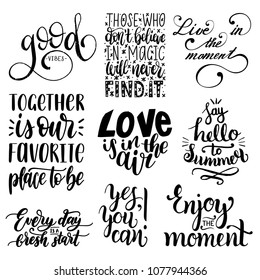 good
VIBES
THOSE WHO
don't believe
IN MAGIC
will never
FIND IT.
Live in
the
moment
TOGETHER
is OUR
FAVORITE
place to be
LOVE
is in the
air
Say
hello
to
Summer
Every day
is a
fresh start
Yes,
you
can!
Enjoy
THE
moment
shutterstock
IMAGE ID: 1077944366
www.shutterstock.com